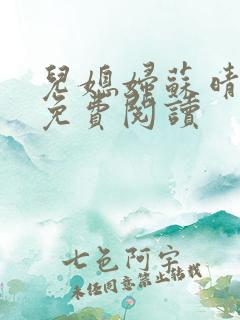 兒媳婦蘇晴
免費閱讀
七色阿宝
未经同意禁止转载